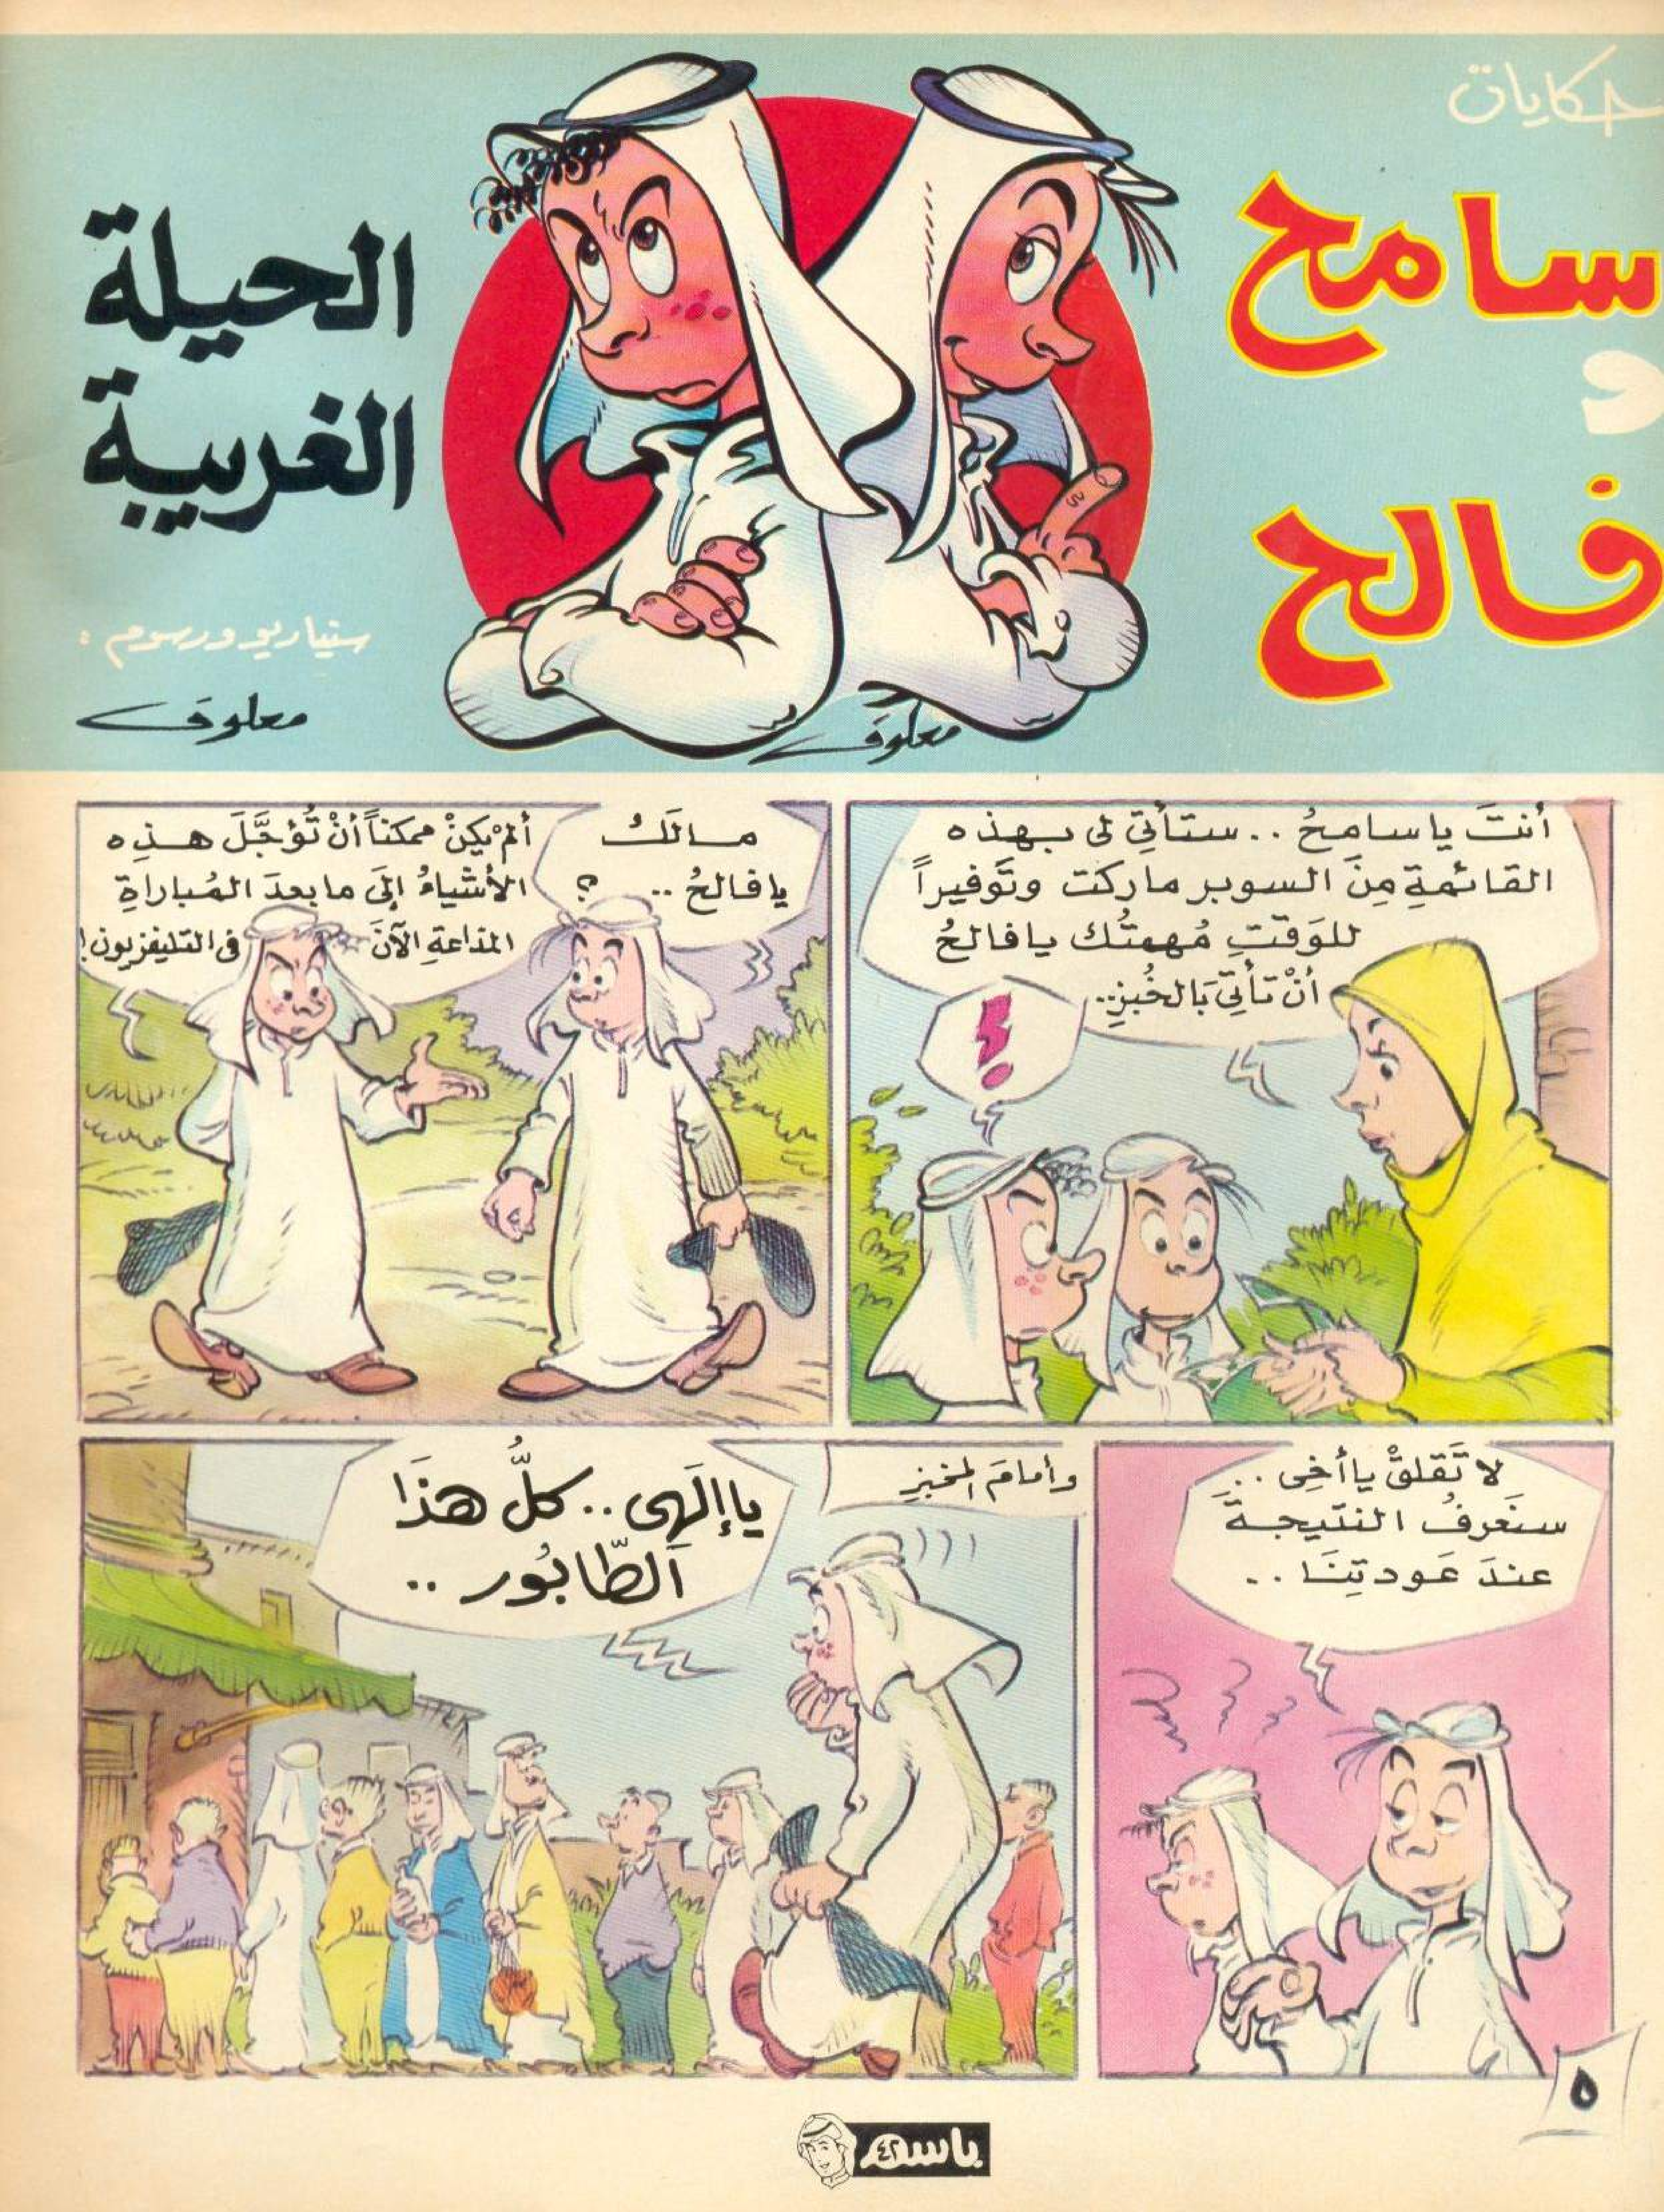 حكايات
سامح
و
فالح
الحيلة
الغريبة
سيناريو ورسوم :
معلوف
معلوف
أنتَ يا سامحُ .. ستأتي لى بهذه
القائمةِ مِنَ السوبر ماركت وتَوفيراً
للوَقتِ مُهمتُك يا فالحُ
أنْ تأتِيَ بالخُبزِ..
!
مالَكَ
يا فالحُ .. ؟
ألمْ يكِنْ ممكناً أنْ تُؤجَّلَ هذِه
الأشياءُ إلَى ما بعدَ المُباراةِ
المذاعةِ الآنَ فى التليفزيون!
لا تَقلقْ يا أخِى ..
سنَعرفُ النتيجةَ
عندَ عَودتِنَا ..
وأمامَ المخبزِ
يا إلَهِى .. كلُّ هذَا
الطّابُور ..
٥
باسم
٤٢